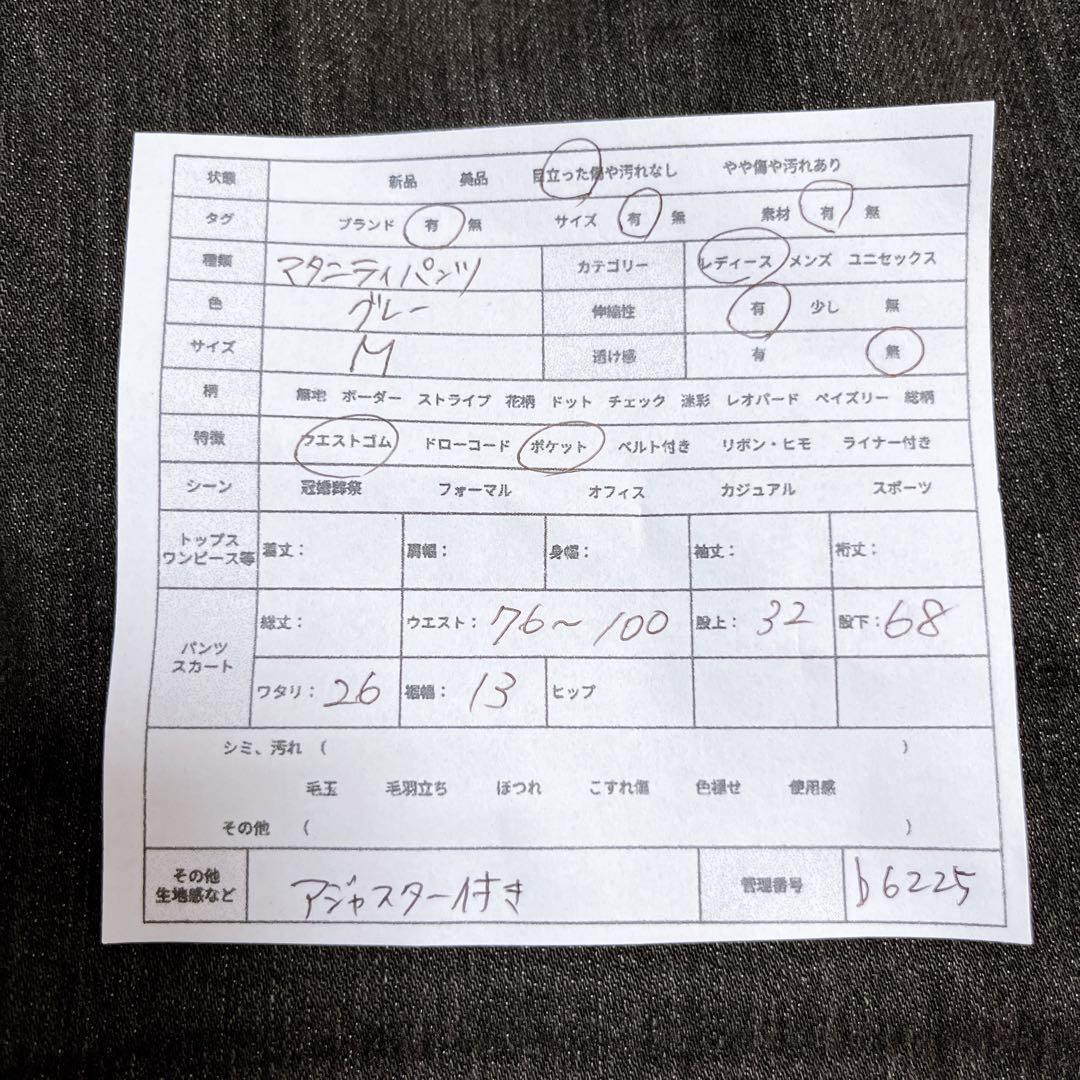 状態 新品 美品 目立った傷や汚れなし やや傷や汚れあり
タグ ブランド 有 無 サイズ 有 無 素材 有 無
種類 マタニティパンツ カテゴリー レディース メンズ ユニセックス
色 グレー 伸縮性 有 少し 無
サイズ M 透け感 有 無
柄 無地 ボーダー ストライプ 花柄 ドット チェック 迷彩 レオパード ペイズリー 総柄
特徴 ウエストゴム ドローコード ポケット ベルト付き リボン・ヒモ ライナー付き
シーン 冠婚葬祭 フォーマル オフィス カジュアル スポーツ
トップス
ワンピース等 着丈: 肩幅: 身幅: 袖丈: 裄丈:
パンツ
スカート
総丈: ウエスト: 76~100 股上: 32 股下: 68
ワタリ: 26 裾幅: 13 ヒップ
シミ、汚れ ( )
毛玉 毛羽立ち ほつれ こすれ傷 色褪せ 使用感
その他 ( )
その他
生地感など アジャスター付き 管理番号 b6225